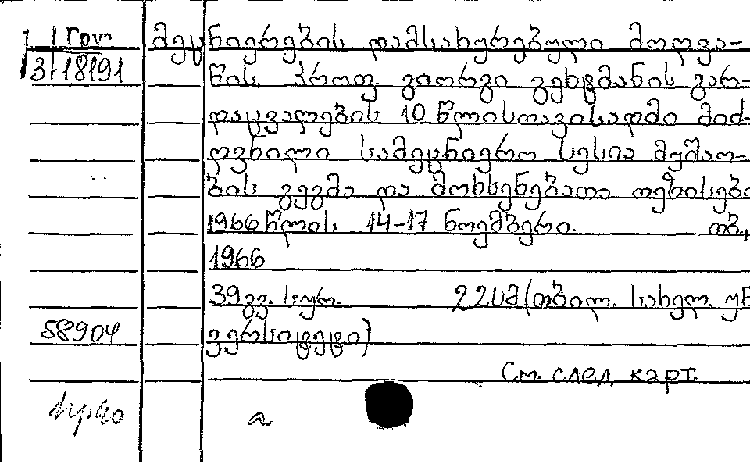 Гоч.
3/18191
მეცნიერების დამსახურებული მოღვა-
წის პროფ. გიორგი გეხტმანის გარ-
დაცვალების 10 წლისთავისადმი მიძ-
ღვნილი სამეცნიერო სესია მუშაო-
ბის გეგმა და მოხსენებათა თეზისები
1966 წლის 14-17 ნოემბერი. თბ.,
1966
39 გვ. სურ. 22სმ (თბილ. სახელ. უნ
ვერსიტეტი)
58904
См. след. карт.